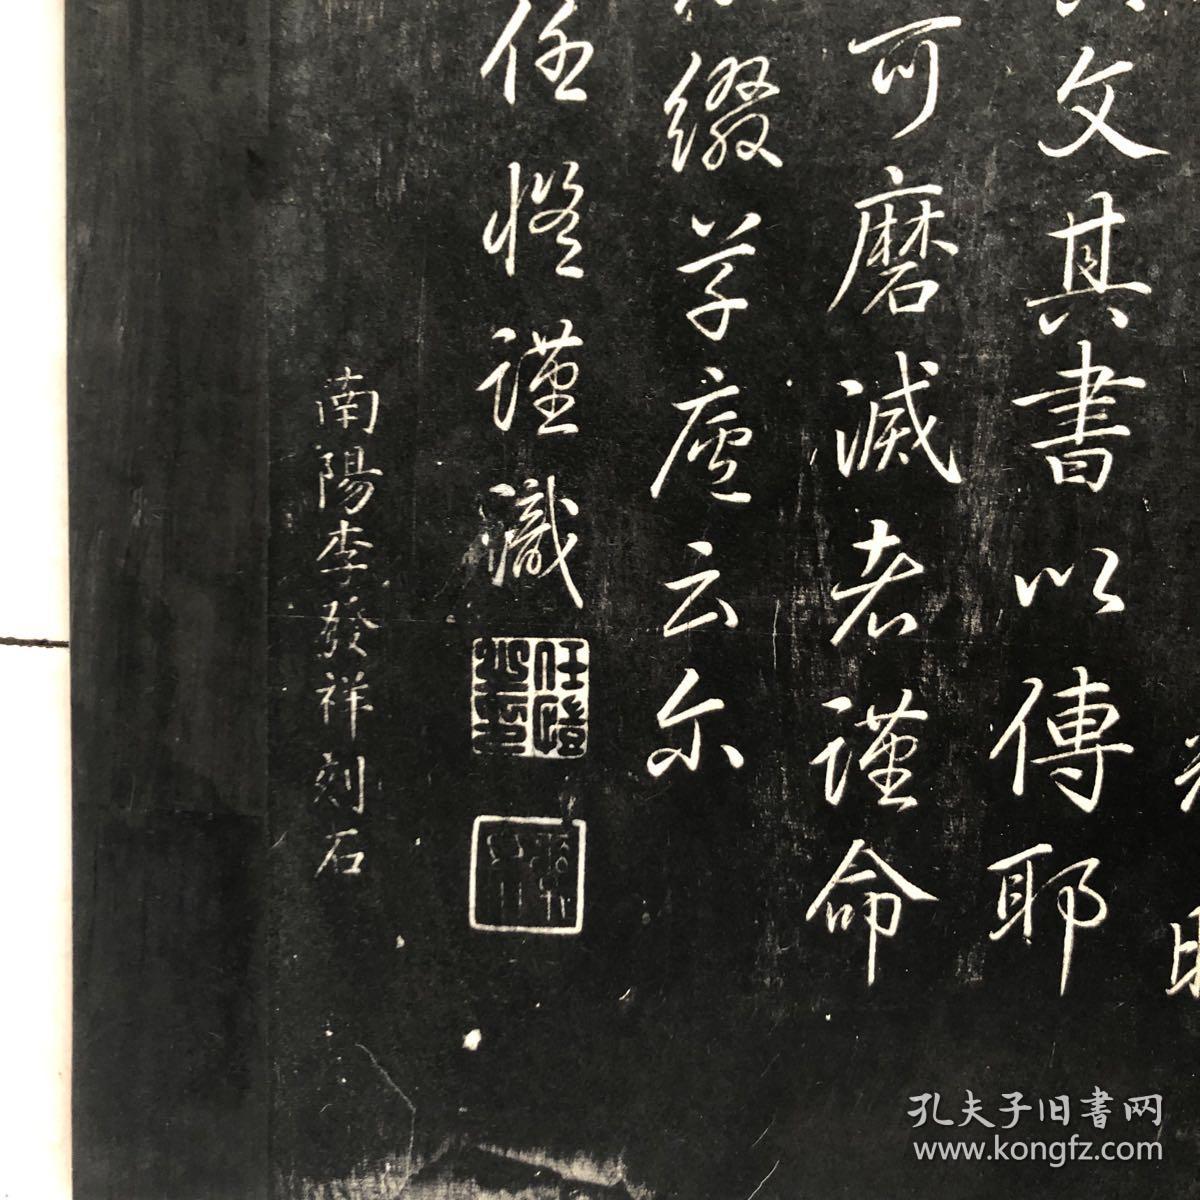 文其書以傳耶
可磨滅者謹命
綴草廬云尔
任愷謹識
任愷
南陽李發祥刻石
孔夫子旧書网
www.kongfz.com